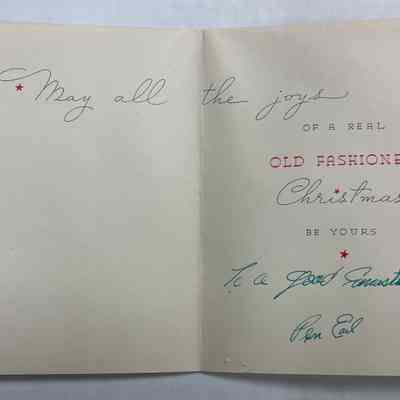 May all the joys
OF A REAL
OLD FASHIONE
Christmas
BE YOURS
To a good
Earl